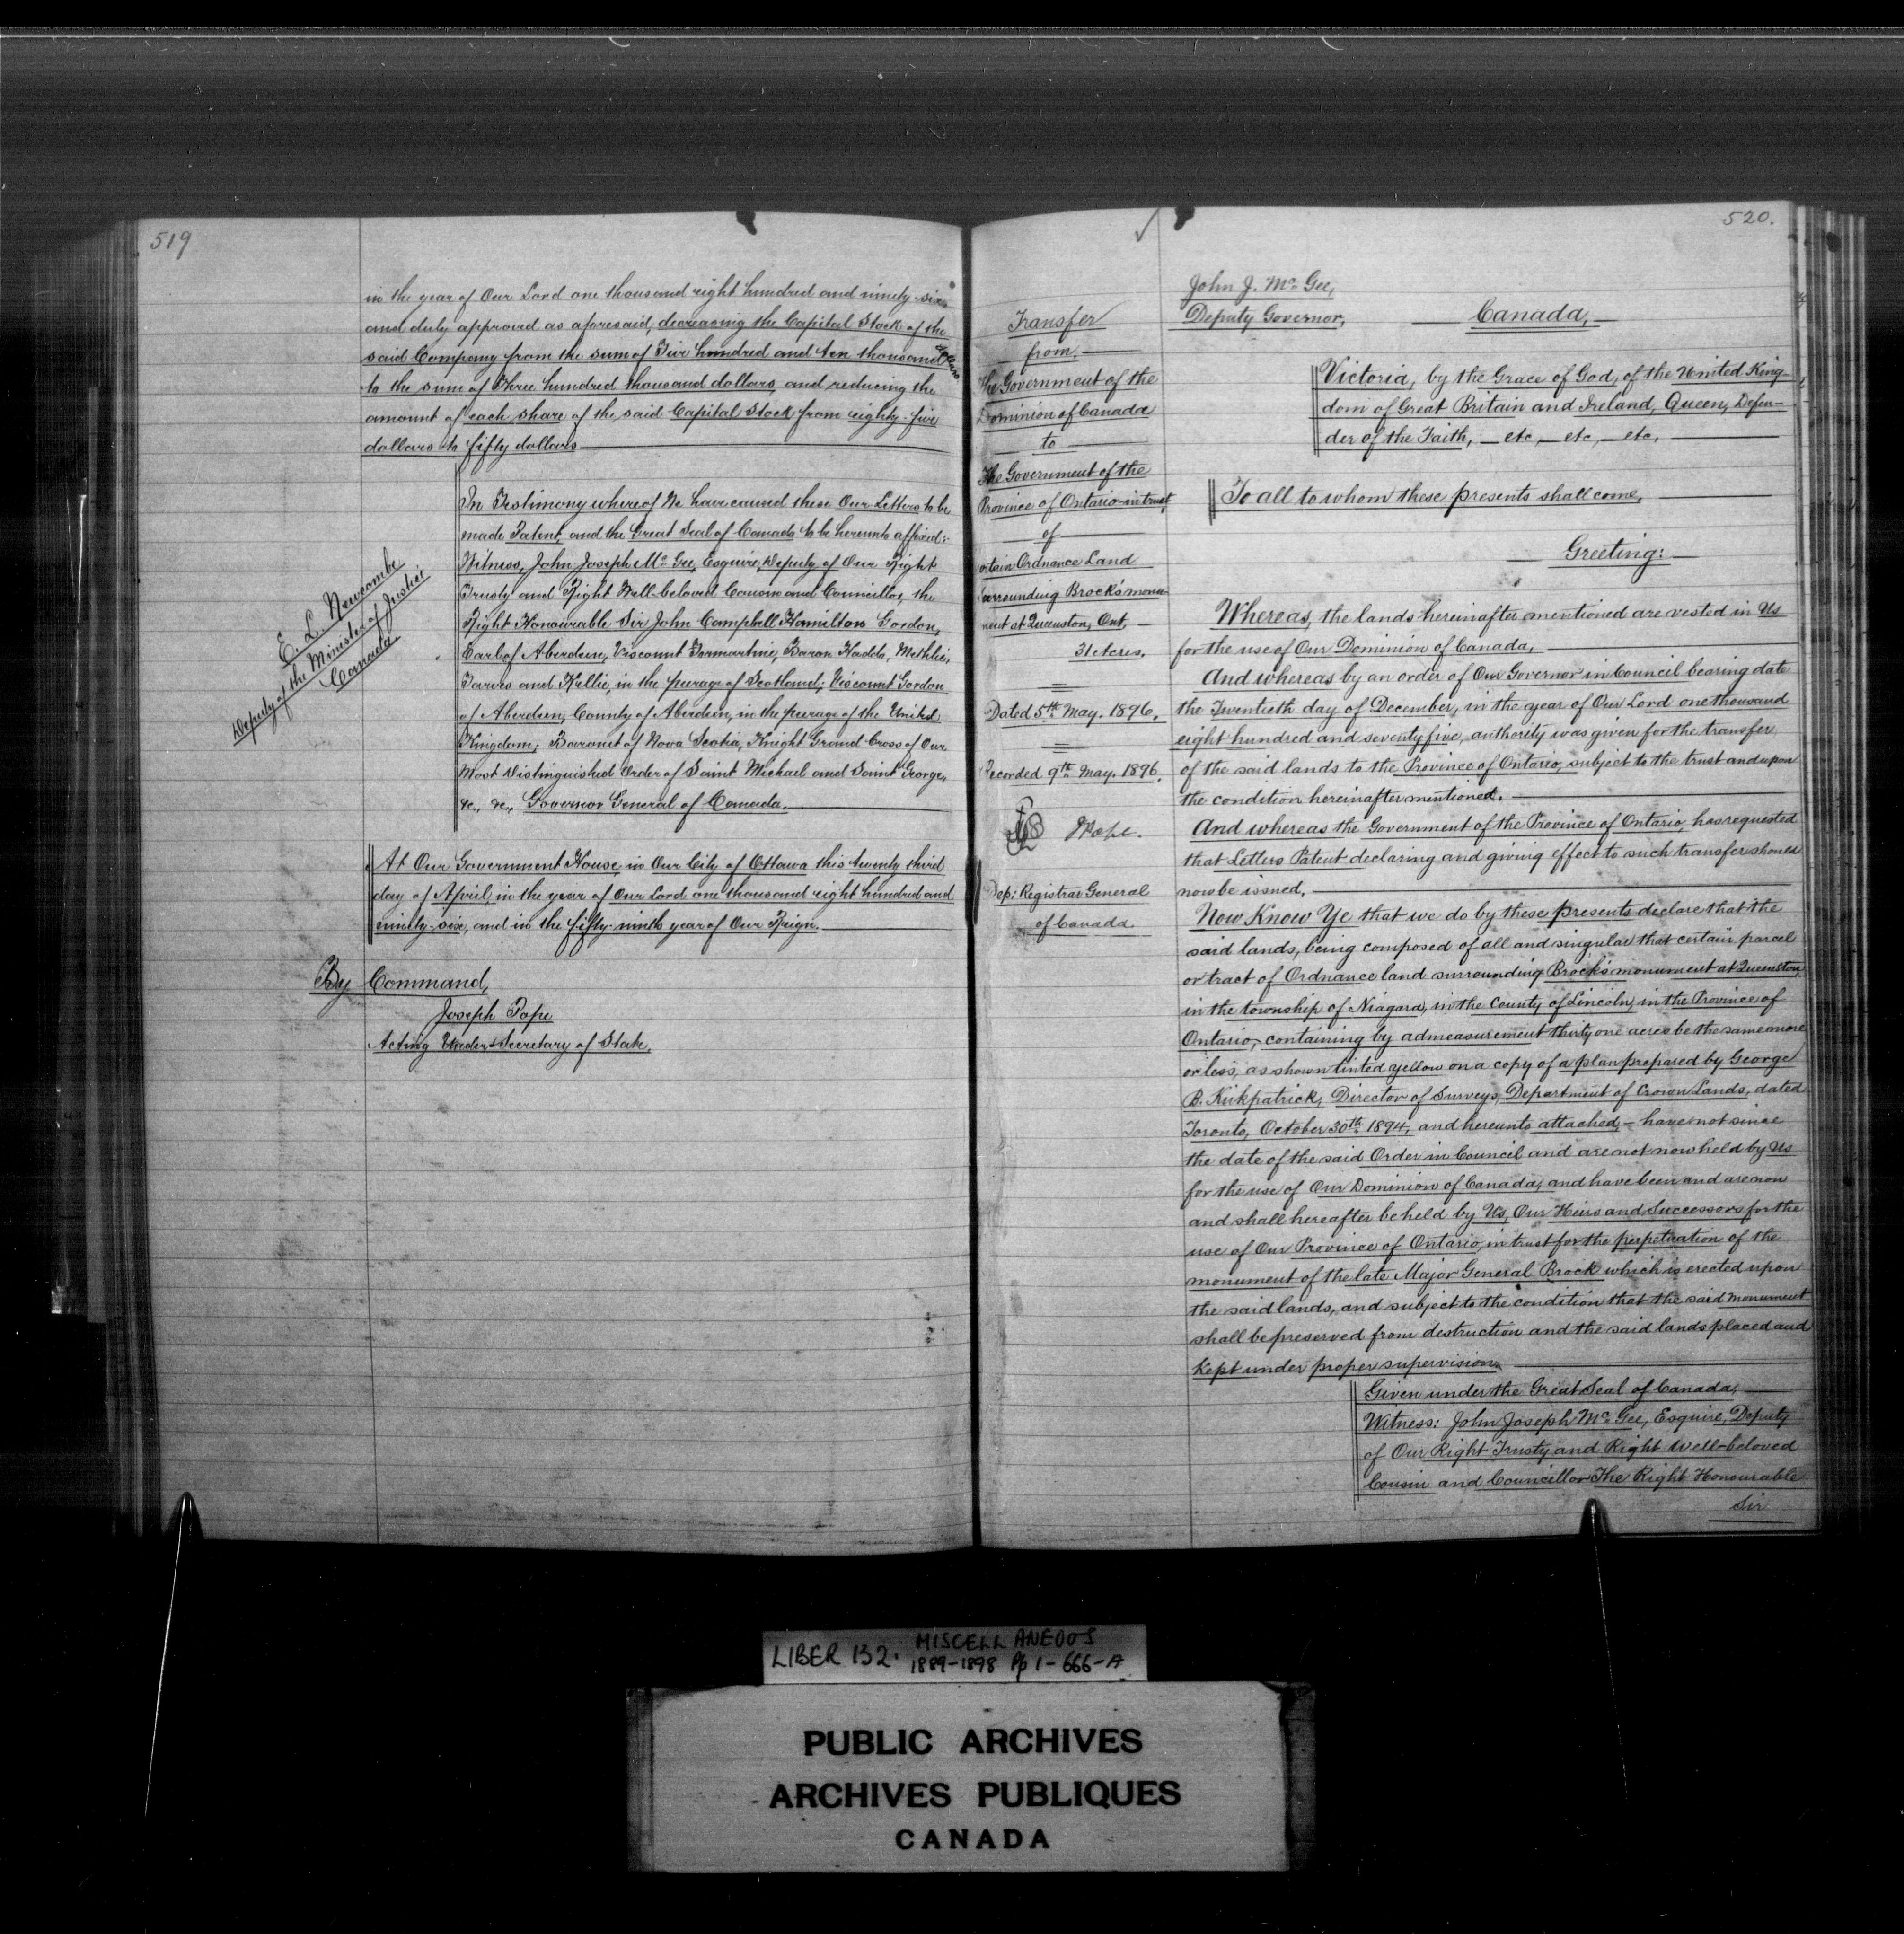 519
in the year of Our Lord one thousand eight hundred and ninety-six
and duly approved as aforesaid, decreasing the Capital Stock of the
said Company from the sum of Five hundred and ten thousand dollars
to the sum of Three hundred thousand dollars, and reducing the
amount of each share of the said Capital Stock from eighty-five
dollars to fifty dollars
In Testimony whereof We have caused these Our Letters to be
made Patent, and the Great Seal of Canada to be hereunto affixed:
Witness, John Joseph Mc Gee, Esquire, Deputy of Our Right
Trusty and Right Well-beloved Cousin and Councillor, the
Right Honourable Sir John Campbell Hamilton Gordon,
Earl of Aberdeen, Viscount Formartine, Baron Haddo, Methlic,
Tarves and Kellie, in the peerage of Scotland; Viscount Gordon
of Aberdeen, County of Aberdeen, in the peerage of the United
Kingdom; Baronet of Nova Scotia, Knight Grand Cross of Our
Most Distinguished Order of Saint Michael and Saint George,
&c., &c., Governor General of Canada.
E. L. Newcombe
Deputy of the Minister of Justice
Canada
At Our Government House, in Our City of Ottawa this twenty third
day of April, in the year of Our Lord one thousand eight hundred and
ninety-six, and in the fifty-ninth year of Our Reign.
By Command,
Joseph Pope
Acting Under Secretary of State.
520.
Transfer
from
The Government of the
Dominion of Canada
to
The Government of the
Province of Ontario in trust
of
certain Ordnance Land
surrounding Brock's monu-
ment at Queenston, Ont,
31 Acres.
Dated 5th May. 1896.
Recorded 9th May. 1896.
JPope.
Dep: Registrar General
of Canada
John J. Mc Gee,
Deputy Governor,
Canada,
Victoria, by the Grace of God, of the United King-
dom of Great Britain and Ireland, Queen, Defen-
der of the Faith, etc, etc, etc,
To all to whom these presents shall come,
Greeting:
Whereas, the lands hereinafter mentioned are vested in Us
for the use of Our Dominion of Canada,
And whereas by an order of Our Governor in Council bearing date
the Twentieth day of December, in the year of Our Lord one thousand
eight hundred and seventy five, authority was given for the transfer
of the said lands to the Province of Ontario, subject to the trust and upon
the condition hereinafter mentioned.
And whereas the Government of the Province of Ontario, has requested
that Letters Patent declaring and giving effect to such transfer should
now be issued.
Now Know Ye that we do by these presents declare that the
said lands, being composed of all and singular that certain parcel
or tract of Ordnance land surrounding Brock's monument at Queenston,
in the township of Niagara, in the County of Lincoln, in the Province of
Ontario, containing by admeasurement thirty one acres be the same more
or less, as shown tinted yellow on a copy of a plan prepared by George
B. Kirkpatrick, Director of Surveys, Department of Crown Lands, dated
Toronto, October 30th 1894, and hereunto attached, – have not since
the date of the said Order in Council and are not now held by Us
for the use of Our Dominion of Canada, and have been and are now
and shall hereafter be held by Us, Our Heirs and Successors for the
use of Our Province of Ontario, in trust for the perpetuation of the
monument of the late Major General Brock which is erected upon
the said lands, and subject to the condition that the said monument
shall be preserved from destruction and the said lands placed and
kept under proper supervision
Given under the Great Seal of Canada,
Witness: John Joseph Mc Gee, Esquire, Deputy
of Our Right Trusty and Right Well-beloved
Cousin and Councillor The Right Honourable
Sir
LIBER 132. MISCELLANEOUS
1889-1898 Pp 1-666-A
PUBLIC ARCHIVES
ARCHIVES PUBLIQUES
CANADA